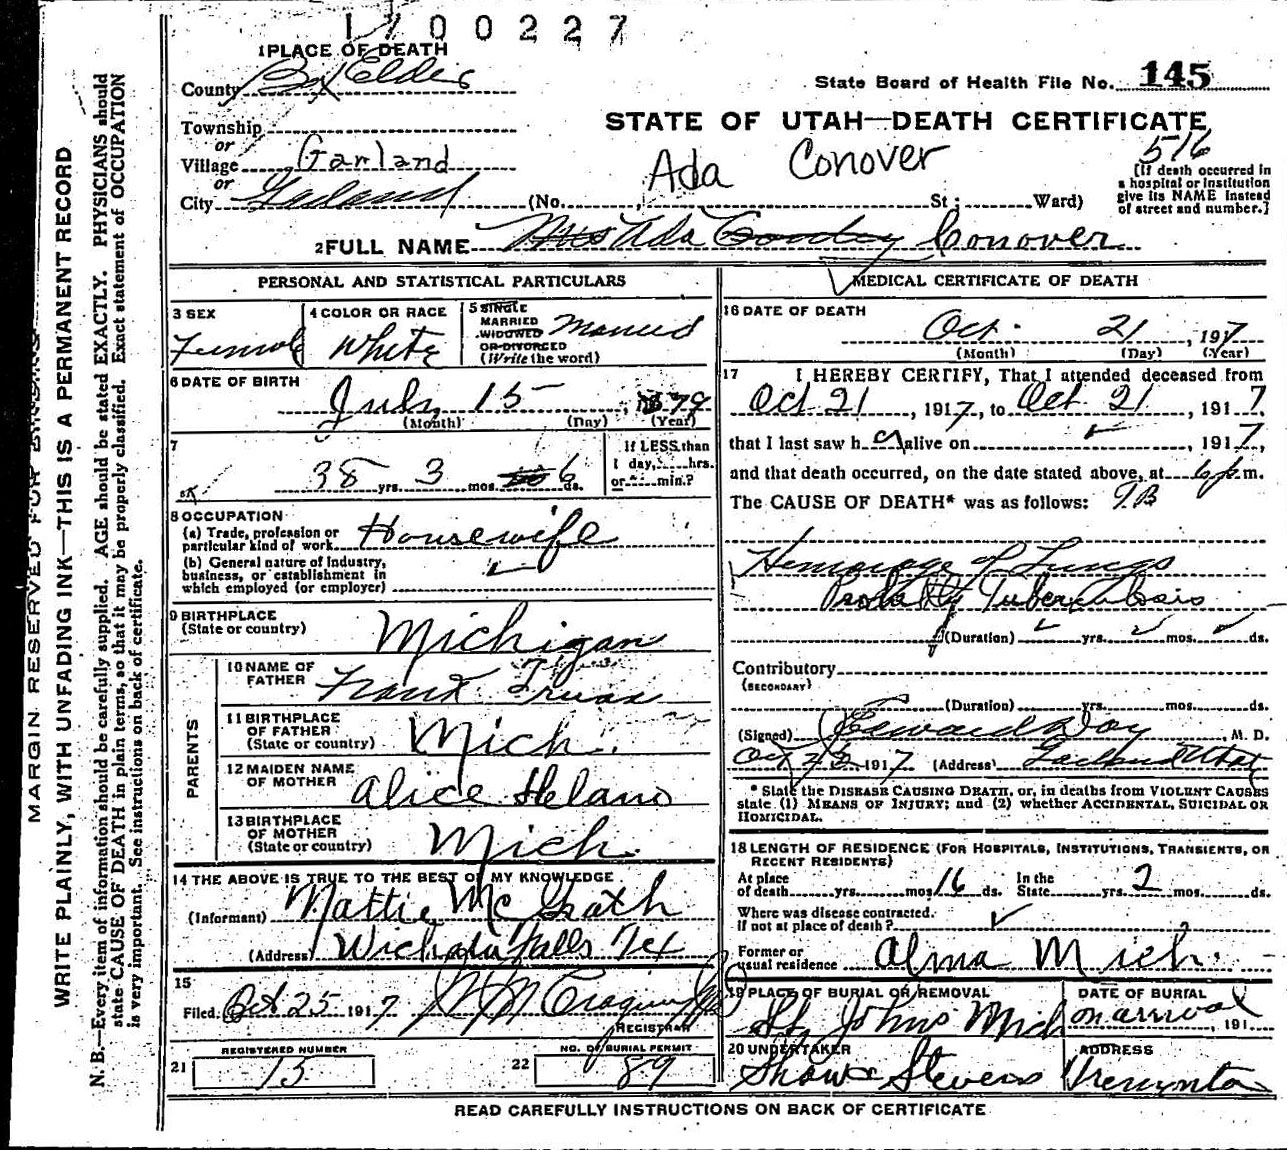 1700227
1 PLACE OF DEATH
County Box Elder
State Board of Health File No. 145
Township
or
Village Garland
or
City Garland (No. , St ; Ward)
STATE OF UTAH—DEATH CERTIFICATE
516
Ada Conover
[If death occurred in
a hospital or institution
give its NAME instead
of street and number.]
2 FULL NAME Mrs Ada Conover
PERSONAL AND STATISTICAL PARTICULARS
3 SEX
Female
4 COLOR OR RACE
White
5 SINGLE
MARRIED
WIDOWED
OR DIVORCED
(Write the word)
Married
6 DATE OF BIRTH
July 15, 1879
(Month) (Day) (Year)
7
38 yrs. 3 mos. 6 ds.
If LESS than
1 day, hrs.
or min.?
8 OCCUPATION
(a) Trade, profession or
particular kind of work Housewife
(b) General nature of Industry,
business, or establishment in
which employed (or employer)
9 BIRTHPLACE
(State or country) Michigan
PARENTS
10 NAME OF
FATHER Frank Truax
11 BIRTHPLACE
OF FATHER
(State or country) Mich.
12 MAIDEN NAME
OF MOTHER Alice Helano
13 BIRTHPLACE
OF MOTHER
(State or country) Mich.
14 THE ABOVE IS TRUE TO THE BEST OF MY KNOWLEDGE
(Informant) Mattie McGrath
(Address) Wichada Falls Tex
15
Filed Oct 25 1917
REGISTRAR
REGISTERED NUMBER
21 15
NO. OF BURIAL PERMIT
22 89
MEDICAL CERTIFICATE OF DEATH
16 DATE OF DEATH
Oct. 21, 1917
(Month) (Day) (Year)
17 I HEREBY CERTIFY, That I attended deceased from
Oct 21, 1917, to Oct 21, 1917
that I last saw her alive on , 1917,
and that death occurred, on the date stated above, at 6 p.m.
The CAUSE OF DEATH* was as follows: TB
Hemorage of Lungs
Probably Tuberculosis
(Duration) yrs. mos. ds.
Contributory
(SECONDARY)
(Duration) yrs. mos. ds.
(Signed) Edward Day, M. D.
Oct 23 1917 (Address) Garland Utah
* State the DISEASE CAUSING DEATH, or, in deaths from VIOLENT CAUSES
state (1) MEANS OF INJURY; and (2) whether ACCIDENTAL, SUICIDAL OR
HOMICIDAL.
18 LENGTH OF RESIDENCE (FOR HOSPITALS, INSTITUTIONS, TRANSIENTS, OR
RECENT RESIDENTS)
At place
of death yrs. mos. 16 ds. In the
State yrs. 2 mos. ds.
Where was disease contracted.
if not at place of death?
Former or
usual residence Alma Mich.
19 PLACE OF BURIAL OR REMOVAL
St. Johns Mich
DATE OF BURIAL
on arrival, 191
20 UNDERTAKER
Shaw & Stevens
ADDRESS
Tremonton
READ CAREFULLY INSTRUCTIONS ON BACK OF CERTIFICATE
MARGIN RESERVED FOR BINDING
WRITE PLAINLY, WITH UNFADING INK—THIS IS A PERMANENT RECORD
N. B.—Every item of information should be carefully supplied. AGE should be stated EXACTLY. PHYSICIANS should
state CAUSE OF DEATH in plain terms, so that it may be properly classified. Exact statement of OCCUPATION
is very important. See instructions on back of certificate.